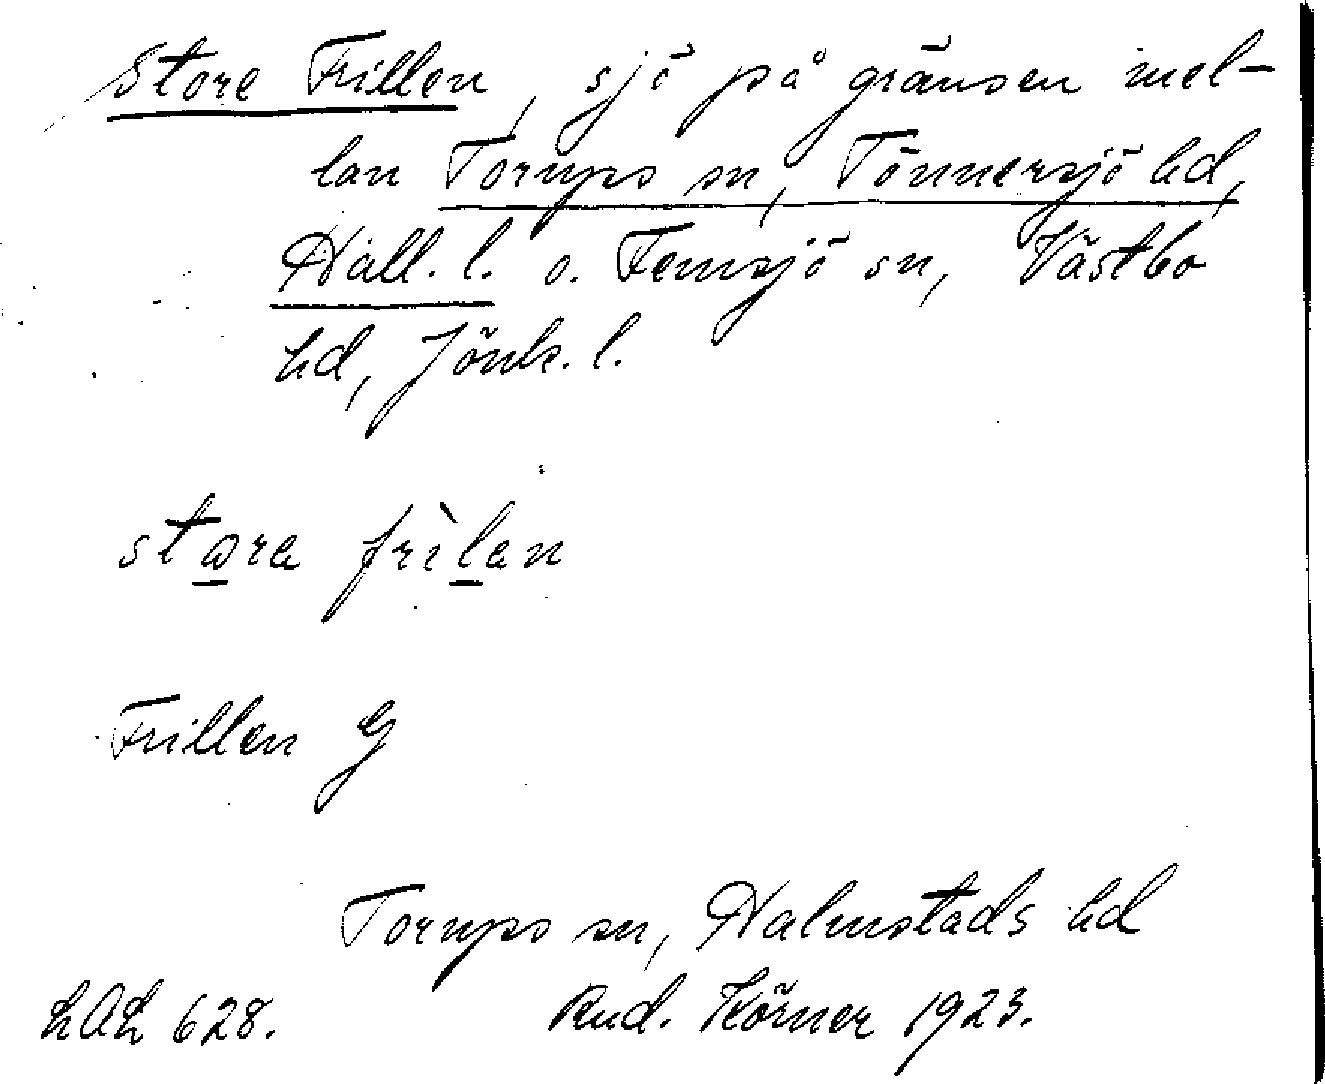 Store Frillen, sjö på gränsen mel-
lan Torups sn, Tönnersjö hd,
Hall. l. o. Femsjö sn, Västbo
hd, Jönk. l.
stɷra frìlan
Frillen G
Torups sn, Halmstads hd
LAL 628. Rud. Körner 1923.